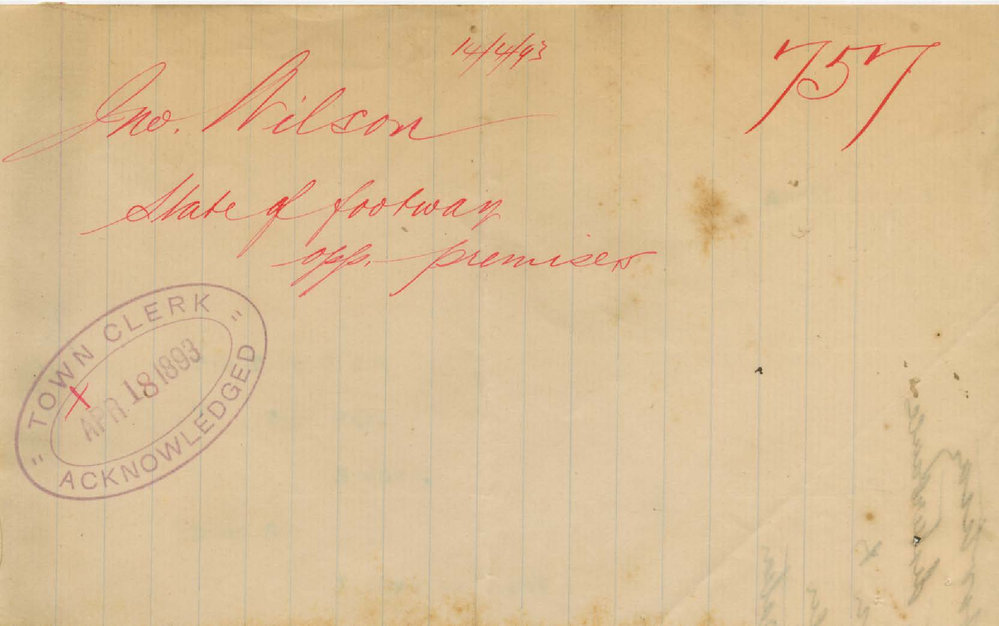 14/4/93
757
Jno. Wilson
State of footway
opp. premises
"TOWN CLERK"
X
APR 18 1893
ACKNOWLEDGED